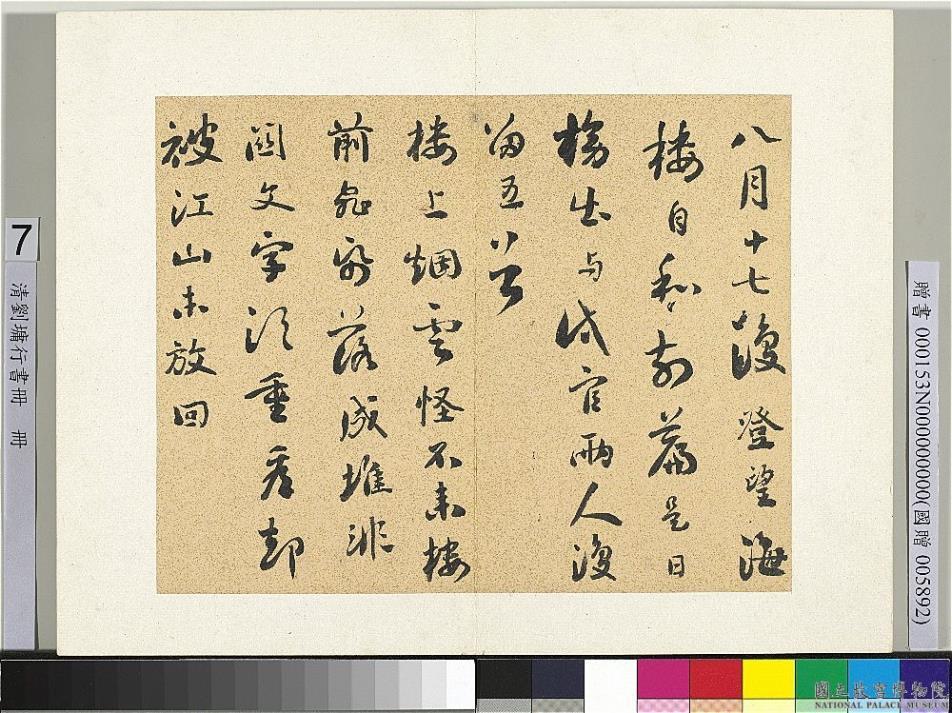 八月十七復澄望海
樓自和前篇是日
榜出与試官兩人復
留五首
樓上烟雲怪不來樓
前飛紙落成堆非
關文字須重看却
被江山未放回
7
清劉墉行書冊 冊
贈書 000153N000000000(國贈 005892)
國立故宮博物院
NATIONAL PALACE MUSEUM